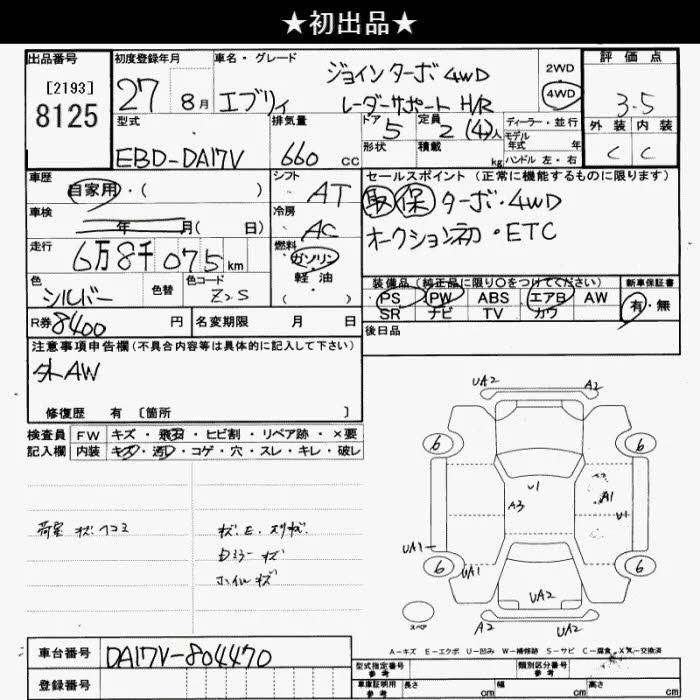 ★初出品★
出品番号
[2193]
8125
初度登録年月
27 8月
車名・グレード
ジョインターボ4WD
エブリィ レーダーサポート H/R
2WD
4WD
評価点
3.5
外装 内装
C C
型式
EBD-DA17V
排気量
660 cc
ドア 5
形状
定員 2 (4)人
積載 kg
ディーラー・並行
モデル
年式 年
ハンドル 左・右
車歴
自家用・( )
シフト
AT
車検
年 月( 日)
冷房
AC
走行
6万8千075km
燃料
ガソリン
軽油
( )
色
シルバー
色替
色コード
Z2S
R券 8400 円
名変期限 月 日
セールスポイント (正常に機能するものに限ります)
取保 ターボ・4WD
オークション初・ETC
装備品 (純正品に限り○をつけてください)
新車保証書
PS PW ABS エアB AW
有・無
SR ナビ TV カワ
後日品
注意事項申告欄(不具合内容等は具体的に記入して下さい)
外AW
修復歴 有 〔箇所 〕
検査員 FW キズ・飛石・ヒビ割・リペア跡・×要
記入欄 内装 キズ・汚レ・コゲ・穴・スレ・キレ・破レ
荷室 キズ ヘコミ
キズ.E.スリキズ.
Dミラーキズ
ホイルキズ
UA2 A2
6 6
U1
A3
A1
U1
UA1
6 UA1 6
UA2
スペア
A2 UA2
A-キズ E-エクボ U-凹み W-補修跡 S-サビ C-腐食 X,X-交換済
車台番号
DA17V-804470
登録番号
型式指定番号
参考
類別区分番号
参考
車庫証明用
参考
長さ cm 幅 cm 高さ cm